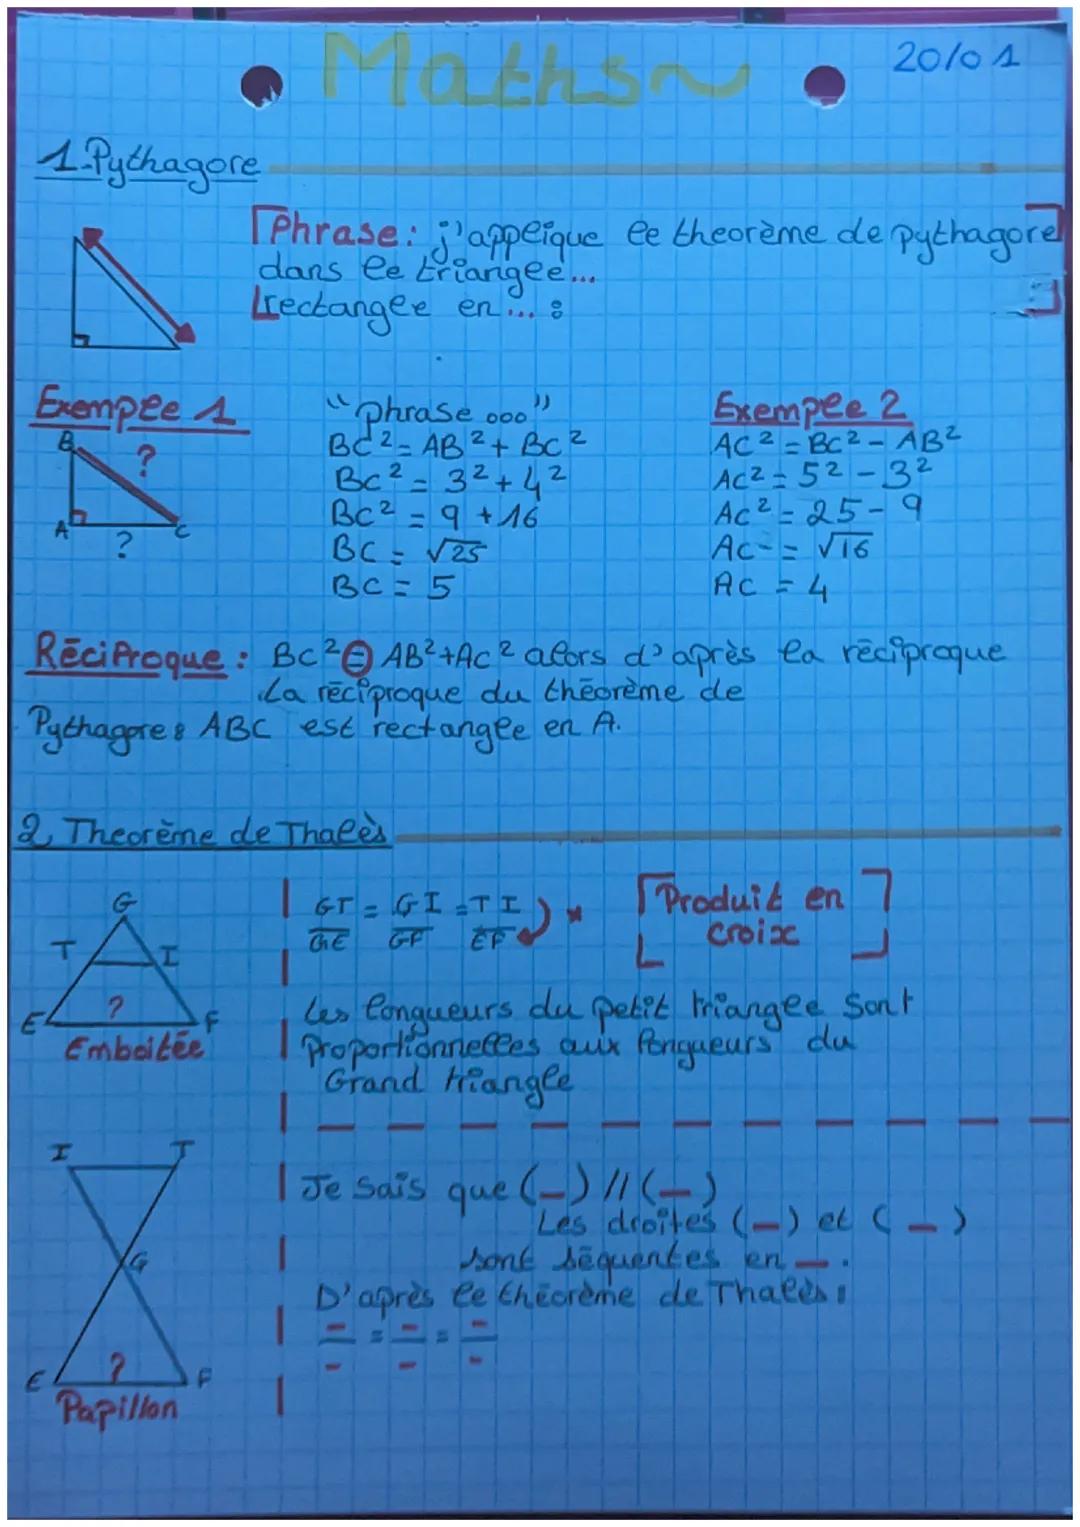 Maths
20/01
1-Pythagore
Phrase: j'applique le theorème de pythagore
dans le triangle...
rectangle en ... :
Exemple 1
B
?
A
?
C
"phrase ooo"
BC² = AB² + BC²
BC² = 3² + 4²
BC² = 9 + 16
BC = √25
BC = 5
Exemple 2
AC² = BC² - AB²
AC² = 5² - 3²
AC² = 25 - 9
AC = √16
AC = 4
Réciproque : BC² = AB² + AC² alors d'après la réciproque
La réciproque du théorème de
Pythagore : ABC est rectangle en A.
2 Theorème de Thalès
G
T
I
?
E
F
Emboitée
GT/GE = GI/GF = TI/EF ×
Produit en
croix
Les longueurs du petit triangle sont
Proportionnelles aux longueurs du
Grand triangle
I
T
G
?
E
F
Papillon
Je sais que (-) // (-)
Les droites (-) et (-)
sont séquentes en -.
D'après le théorème de Thalès :
-/- = -/- = -/-